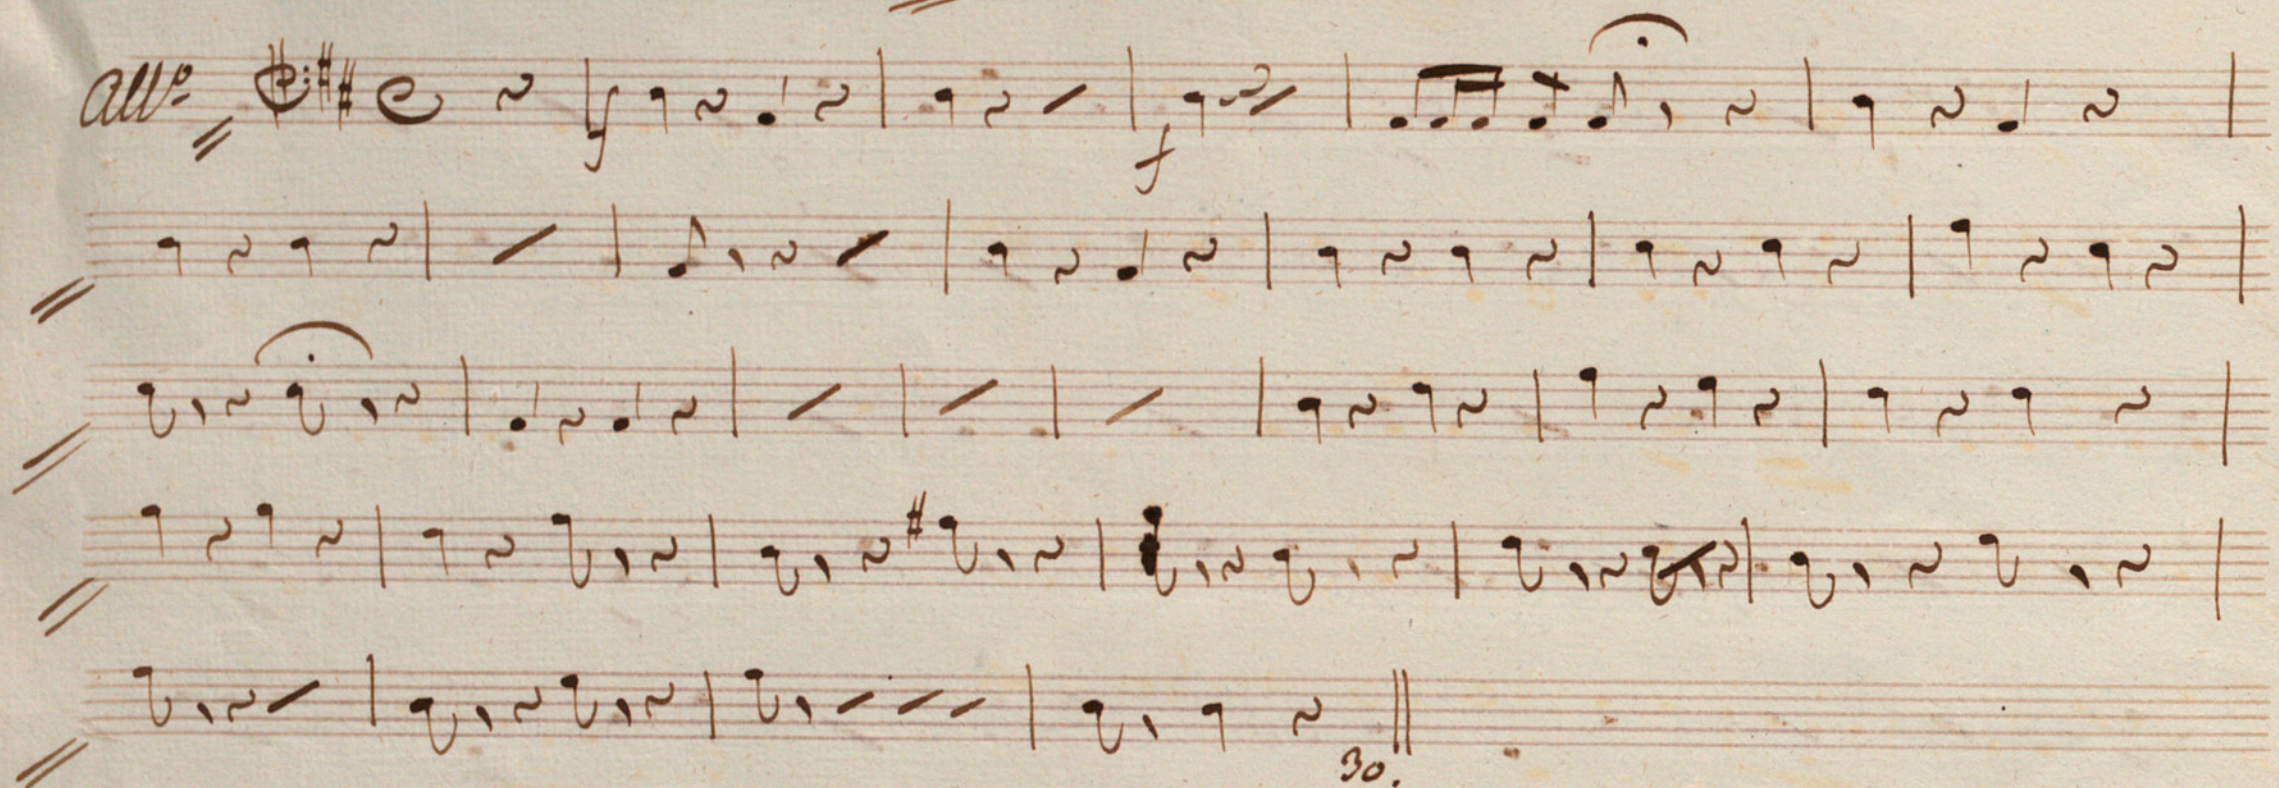 All:o
f
f
30.